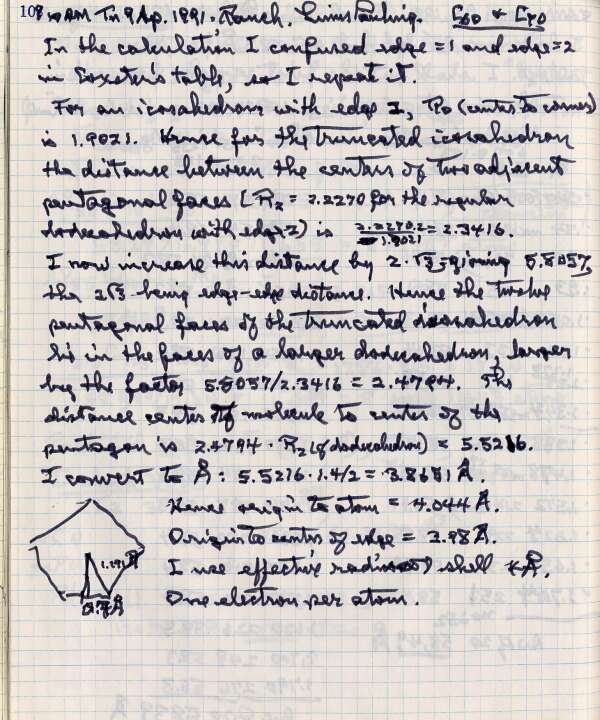 108
8:10 AM Tu 9 Ap. 1991. Ranch. Linus Pauling. C60 & C70
In the calculation I confused edge = 1 and edge = 2
in Coxeter's table, so I repeat it.
For an icosahedron with edge 2, R0 (center to corner)
is 1.9021. Hence for the truncated icosahedron
the distance between the centers of two adjacent
pentagonal faces [R2 = 2.2270 for the regular
dodecahedron with edge 2) is 2.2270.2/1.9021 = 2.3416.
I now increase this distance by 2·√3, giving 5.8057,
the 2√3 being edge-edge distance. Hence the twelve
pentagonal faces of the truncated icosahedron
lie in the faces of a larger dodecahedron, larger
by the factor 5.8057/2.3416 = 2.4794. The
distance center of molecule to center of the
pentagon is 2.4794 · R2 (of dodecahedron) = 5.5216.
I convert to Å: 5.5216·1.4/2 = 3.8651 Å.
Hence origin to atom = 4.044 Å.
Origin to center of edge = 3.98 Å.
1.191 Å
I use effective radius shell 4 Å.
0.7 Å
One electron per atom.